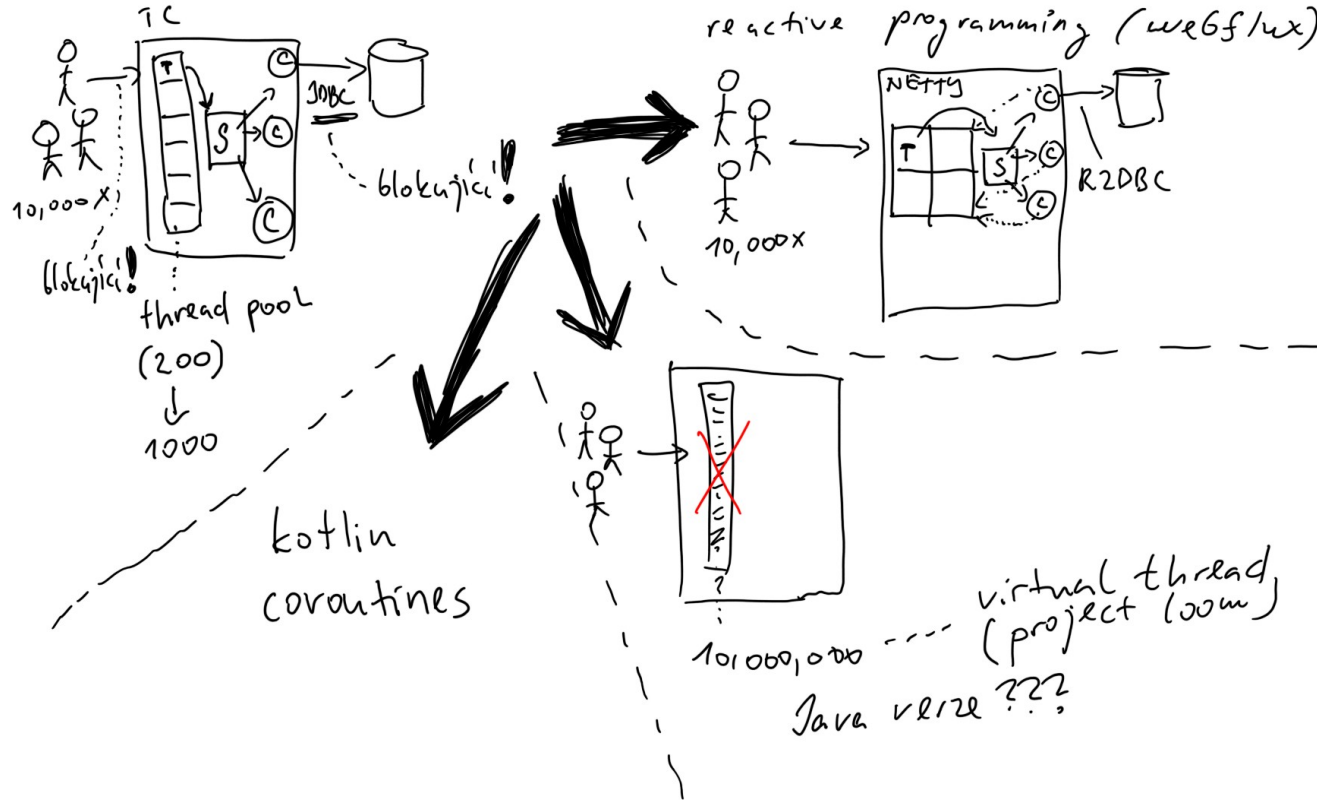 TC
T
S
C
C
C
JDBC
10,000x
blokující!
blokující!
thread pool
(200)
1000
reactive programming (webflux)
NETTY
T
S
C
C
C
R2DBC
10,000x
kotlin
coroutines
10,000,000
virtual thread,
(project loom)
Java verze ???